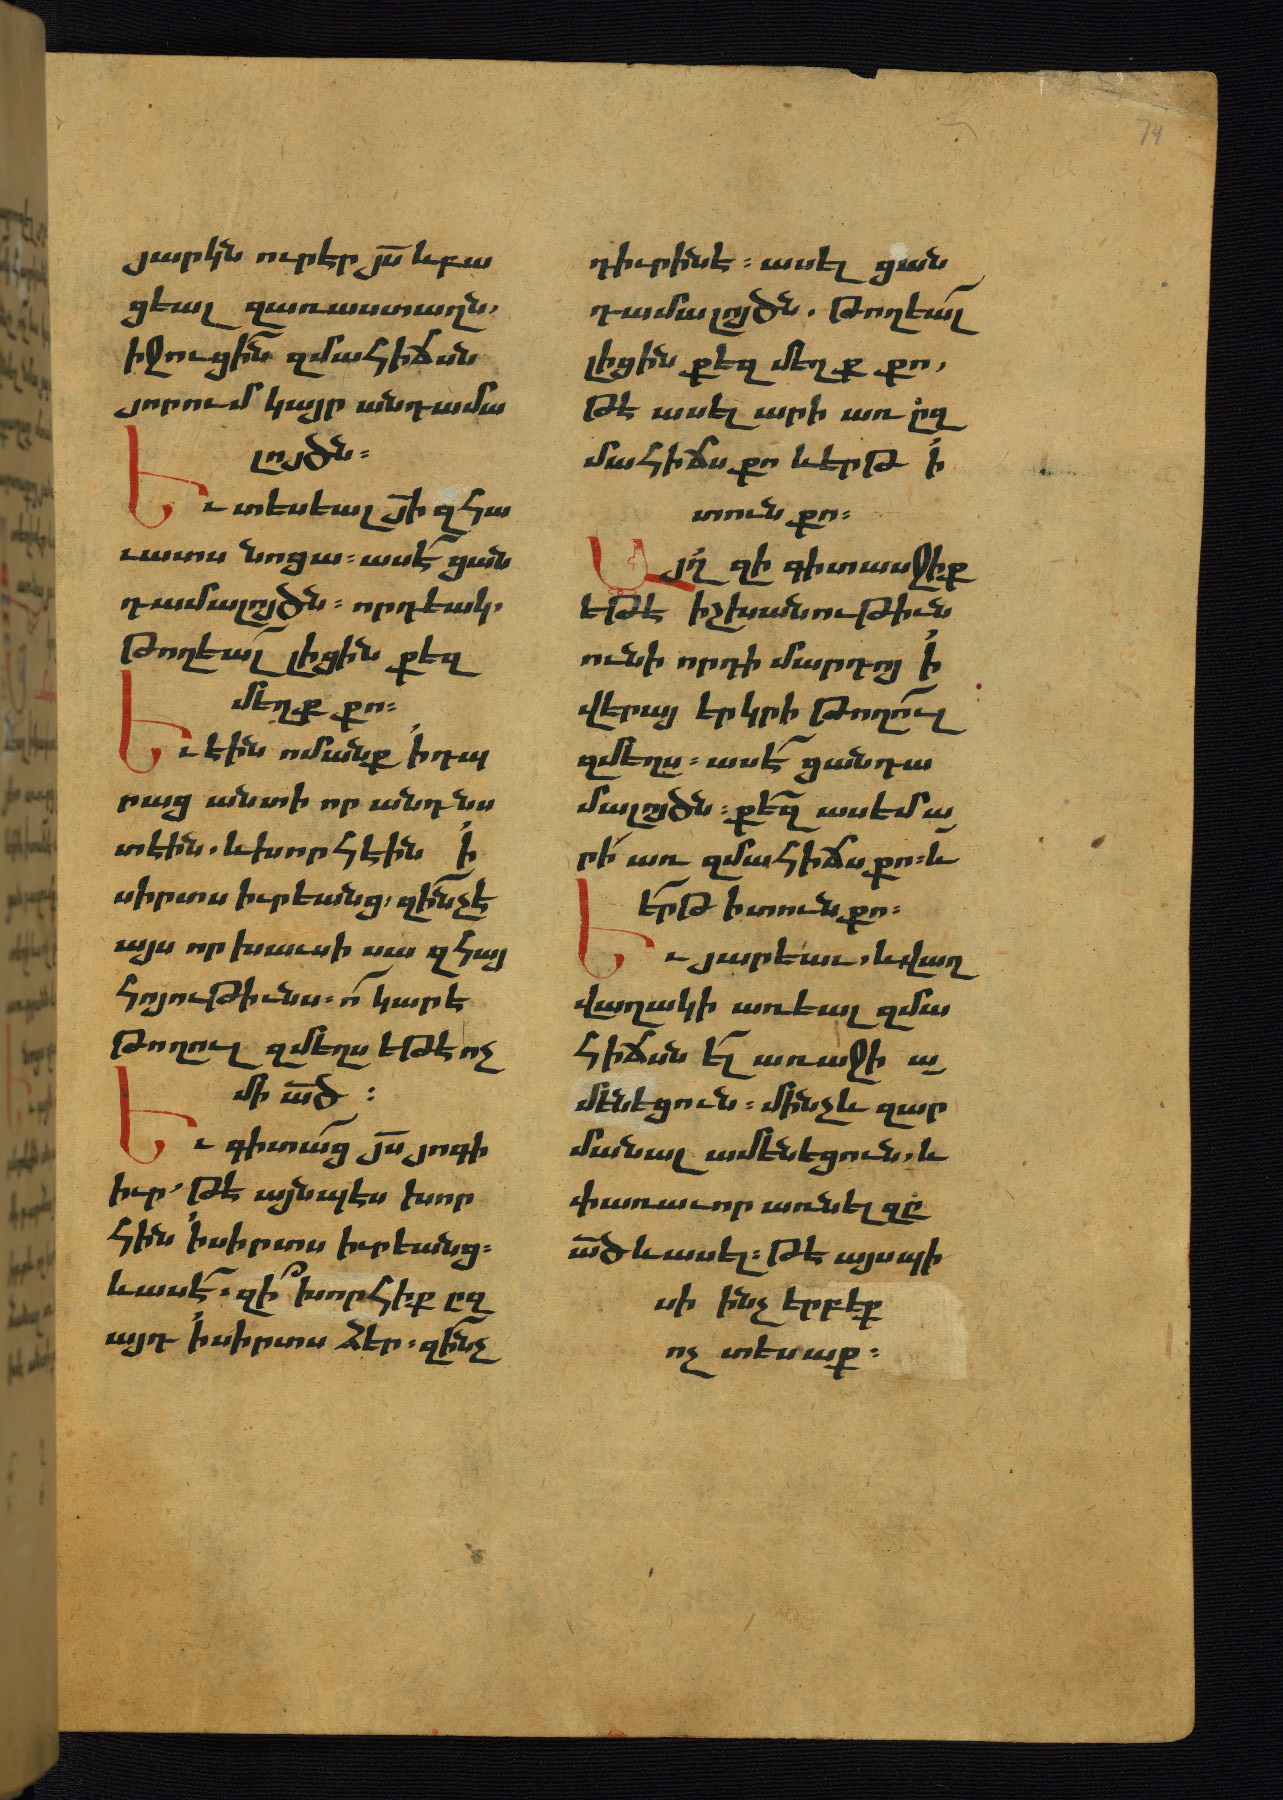 74
յարկն ուր էր յս̄ և բա
ցեալ զառաստաղն,
իջուցին զմահիճսն
յորում կայր անդամա
լոյծն։
Եւ տեսեալ յի̄ զհա
ւատս նոցա։ ասէ ցան
դամալոյծն։ որդեակ,
թողեալ լիցին քեզ
մեղք քո։
Եւ էին ոմանք ի դպ
րաց անտի որ անդ նս
տէին. և խորհէին ի
սիրտս իւրեանց, զինչ է
այս որ խաւսի սա զհայ
հոյութիւնս։ ո՞ կարէ
թողուլ զմեղս եթե ոչ
մի ած̄ ։
Եւ գիտաց յս̄ յոգի
իւր, թէ այնպէս խոր
հին ի սիրտս իւրեանց։
և ասէ. զի՞ խորհիք ըզ
այդ ի սիրտս ձեր։ զինչ
դիւրին է։ ասել ցան
դամալոյծն. թողեալ
լիցին քեզ մեղք քո,
թէ ասել արի առ ըզ
մահիճս քո և երթ ի
տուն քո։
Այղ̄ զի գիտասջիք
եթէ իշխանութիւն
ունի որդի մարդոյ ի
վերայ երկրի թողուլ
զմեղս։ ասէ ցանդա
մալոյծն։ քեզ ասեմ ա
րի առ զմահիճս քո։ և
երթ ի տուն քո։
Եւ յարեաւ, և վաղ
վաղակի առեալ զմա
հիճսն ել առաջի ա
մենեցուն։ մինչև զար
մանալ ամենեցուն, և
փառաւոր առնել զը
ած̄ և ասել։ թէ այսպի
սի ինչ երբեք
ոչ տեսաք։